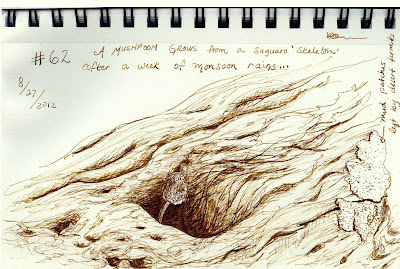 #62
A MUSHROOM GROWS from a Saguaro 'Skeleton'
after a week of monsoon rains...
8/27/
2012
mud patches
by desert termites